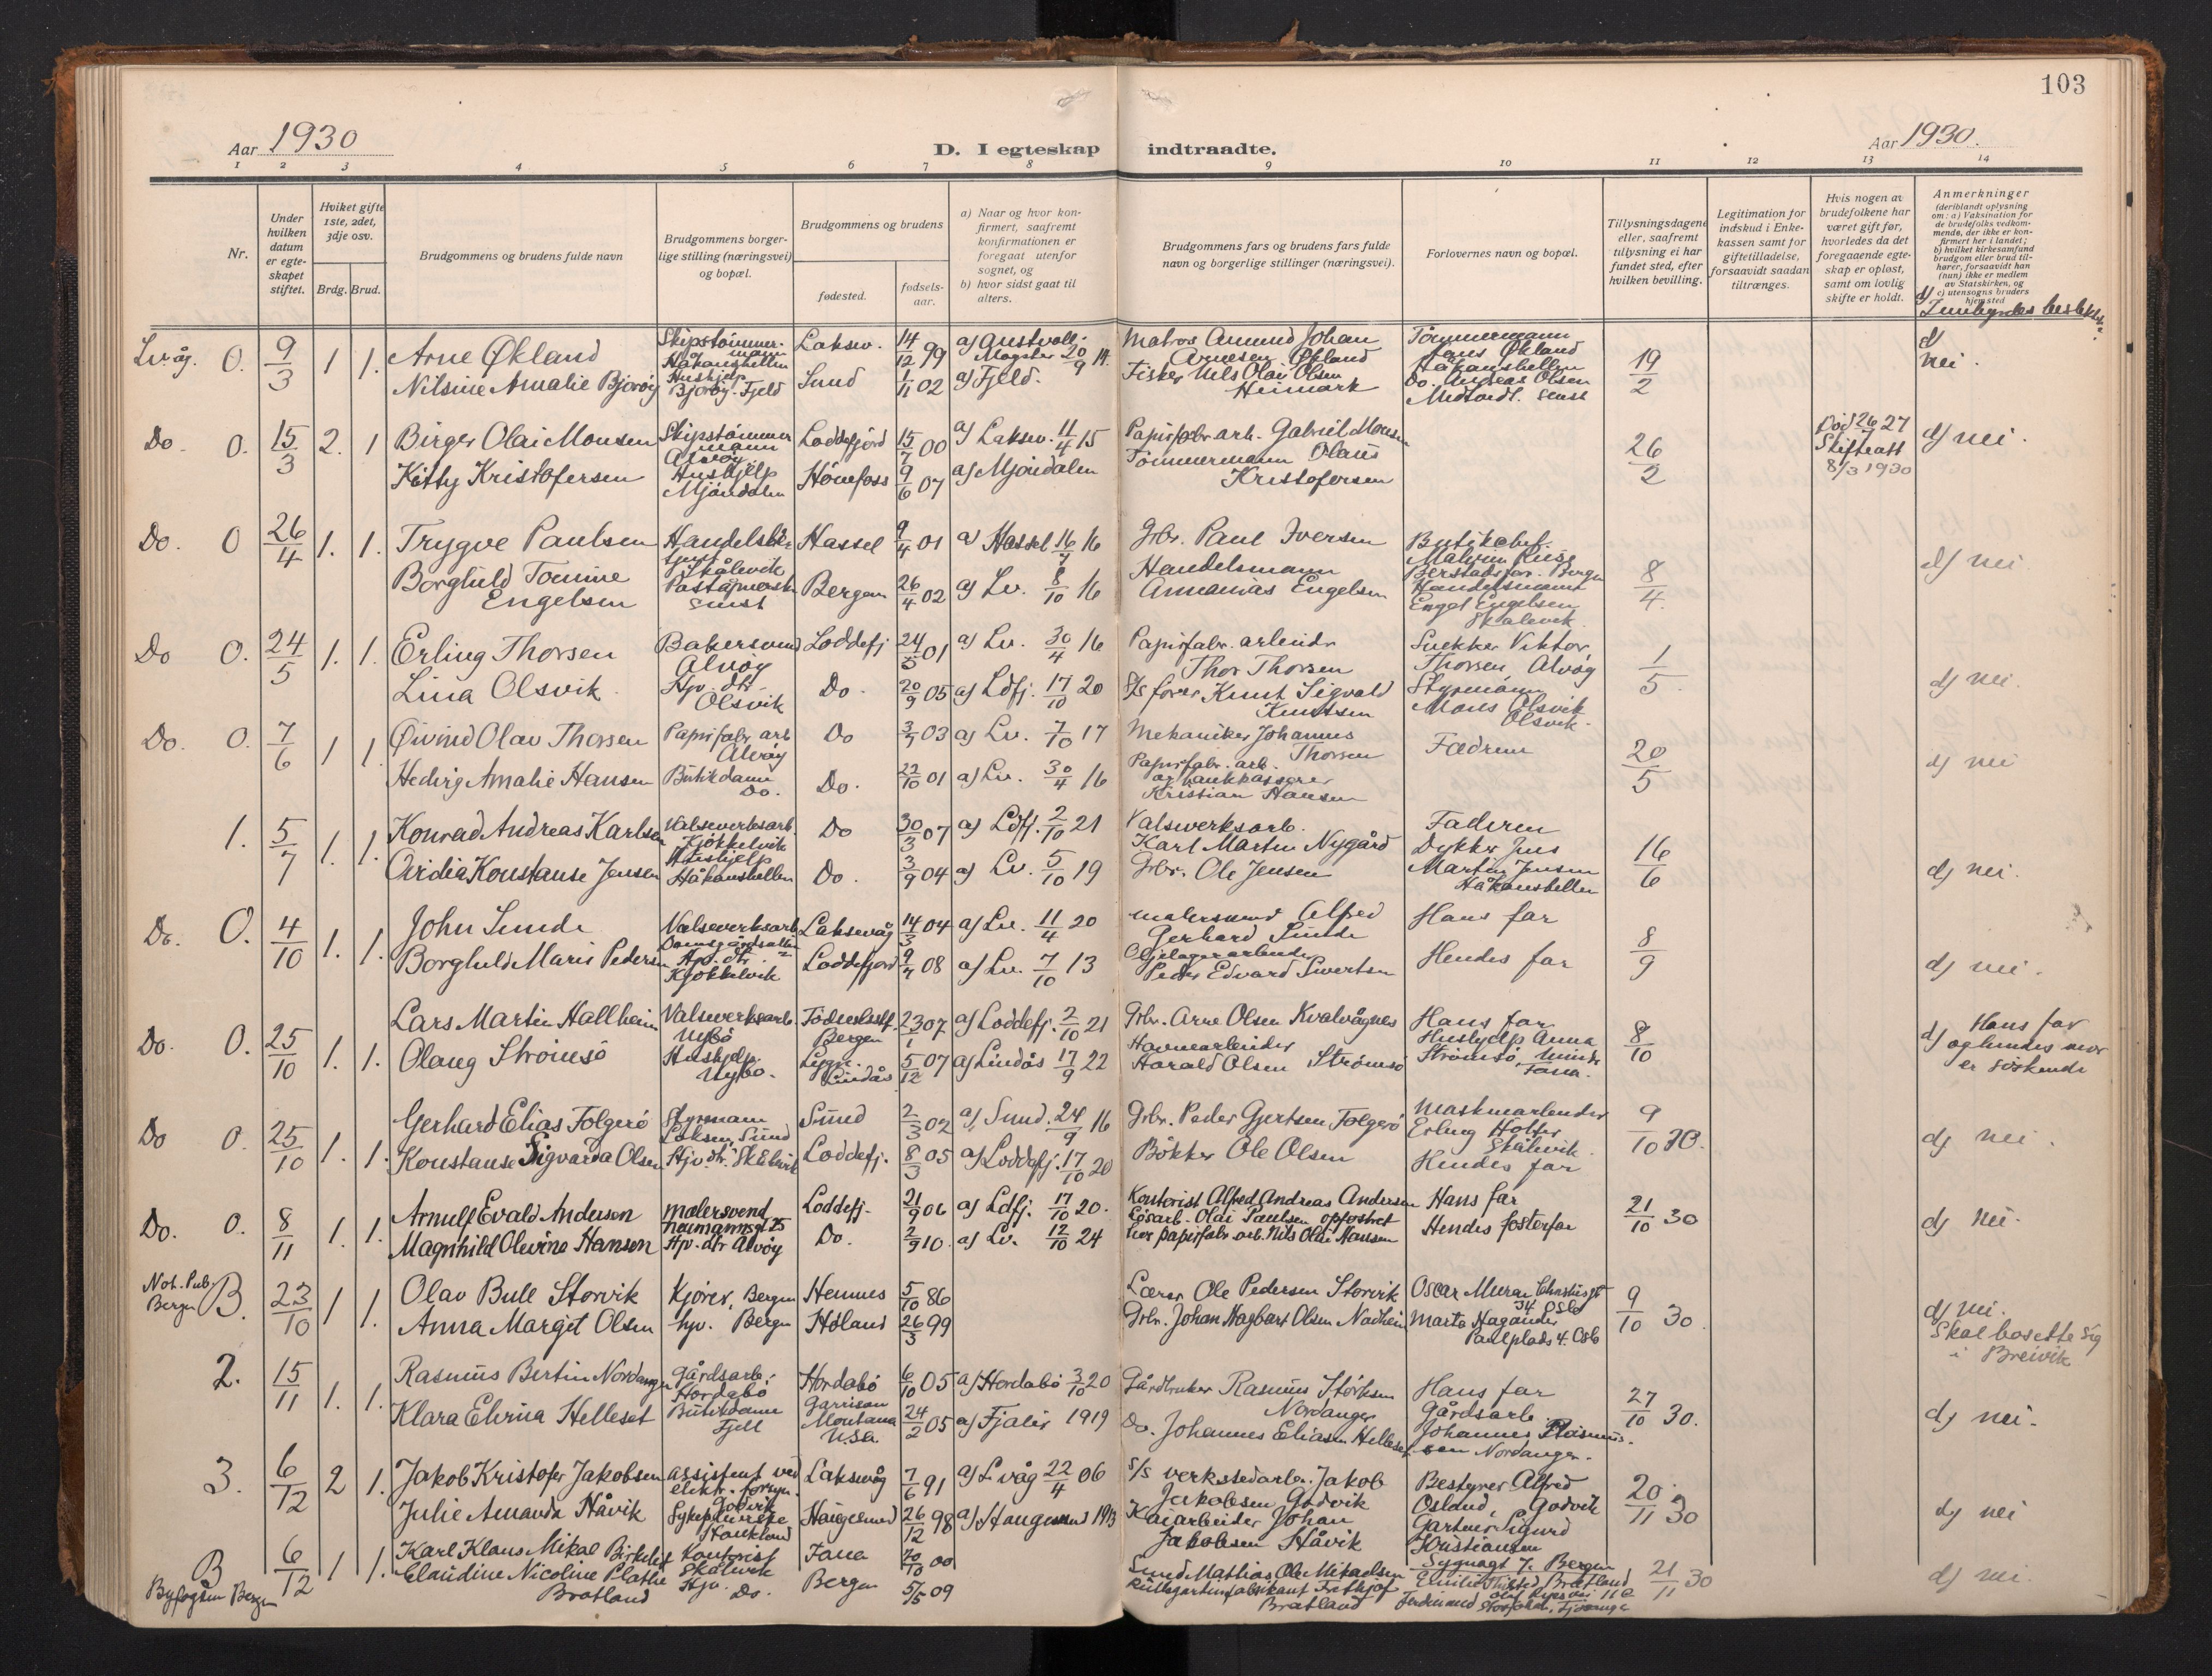 103
Aar 1930
D. I egteskap indtraadte.
Aar 1930.
1 2 3 4 5 6 7 8 9 10 11 12 13 14
Nr.
Under hvilken datum er egteskapet stiftet.
Hviket gifte 1ste, 2det, 3dje osv.
Brdg. Brud.
Brudgommens og brudens fulde navn
Brudgommens borgerlige stilling (næringsvei) og bopæl.
Brudgommens og brudens
fødested.
fødselsaar.
a) Naar og hvor konfirmert, saafremt konfirmationen er foregaat utenfor sognet, og
b) hvor sidst gaat til alters.
Brudgommens fars og brudens fars fulde navn og borgerlige stillinger (næringsvei).
Forlovernes navn og bopæl.
Tillysningsdagene eller, saafremt tillysning ei har fundet sted, efter hvilken bevilling.
Legitimation for indskud i Enkekassen samt for giftetilladelse, forsaavidt saadan tiltrænges.
Hvis nogen av brudefolkene har været gift før, hvorledes da det foregaaende egteskap er opløst, samt om lovlig skifte er holdt.
Anmerkninger
(deriblandt oplysning om: a) Vaksination for de brudefolks vedkommende, der ikke er konfirmert her i landet; b) hvilket kirkesamfund brudgom eller brud tilhører, forsaavidt han (hun) ikke er medlem av Statskirken, og c) utensogns bruders hjemsted
Lv.åg. 0. 9/3 1 1. Arne Økland Skipstømmermann Håkonshellen Laksev. 14/12 99 a) Austvoll Mogster 20/9 14. Matros Amund Johan Arnesen Økland Tømmermann Jens Økland Håkonshellen 19/2 d) nei.
Nilsine Amalie Bjorøy Hushjelp Bjorøy. Fjeld Sund 1/11 02 a) Fjeld. Fisker Nils Olai Olsen Heimark Do. Andreas Olsen
Do. 0. 15/3 2. 1 Birger Olai Monsen Skipstømmermann Alvøy Loddefjord 15/7 00 a) Laksev. 11/4 15 Papirfabr. arb. Gabriel Monsen 26/2 Død 26/7 27 Skifteatt 8/3 1930 d) nei.
Kitty Kristofersen Hushjelp Mjøndalen Hønefoss 9/6 07 a) Mjøndalen Tømmermann Olaus Kristofersen
Do. 0 26/4 1. 1. Trygve Paulsen Skålevik Hassel 9/4 01 a) Hassel 16/7 16 Gbr. Paul Iversen Malvin Bergen 8/4. d) nei
Borghild Tomine Engelsen Bergen 26/4 02 a) Lv. 8/10 16 Handelsmann Ananias Engelsen Handelsmann Engel Engelsen Skålevik
Do 0. 24/5 1. 1. Erling Thorsen Bakersvend Alvøy Loddefj 24/5 01 a) Lv. 30/4 16 Papirfabr. arbeider Thor Thorsen Snekker Viktor Thorsen Alvøy 1/5 d) nei.
Lina Olsvik. Hjv. dtr. Olsvik Do. 20/9 05 a) Ldfj. 17/10 20 S/s fører Knut Sigvald Knutsen Styrmann Mons Olsvik Olsvik.
Do. 0. 7/6 1 1. Øivind Olav Thorsen Papirfabr arb Alvøy Do 3/7 03 a) Lv. 7/10 17 Mekaniker Johannes Thorsen Fædrene 20/5 d) nei
Hedvig Amalie Hansen Butikdame Do. Do. 22/10 01 a) Lv. 30/4 16 Papirfabr. arb. Kristian Hansen
1. 5/7 1. 1. Konrad Andreas Karlsen Valseverksarb. Kjøkkelvik Do 30/3 07 a) Ldfj. 2/10 21 Valsverksarb. Karl Martin Nygård Faderen 16/6 d) nei.
Ovidia Konstanse Jensen Hushjelp Håkonshellen Do. 3/9 04 a) Lv. 5/10 19 Gbr. Ole Jensen Dykker Jens Martin Jensen Håkonshellen
Do. 0. 4/10 1. 1. John Sunde Valseverksarb Laksevåg 14/3 04 a) Lv. 11/4 20 Malersvend Alfred Gerhard Sunde Hans far 8/9 d) nei.
Borghild Marie Pedersen Hv. dtr. Kjøkkelvik Loddefjord 9/7 08 a) Lv. 7/10 13 Oljelagerarbeider Peder Edvard Sivertsen Hendes far
Do. 0. 25/10 1. 1. Lars Martin Hallheim Valseverksarb. Nybø Bergen 23/1 07 a) Loddefj. 2/10 21 Gbr. Arne Olsen Kvalvågnes Hans far 8/10 d) Hans far og hendes mor er søskende
Olaug Strømsø Hushjelp Nybø. Lindås 5/12 07 a) Lindås 17/9 22 Havnearbeider Harald Olsen Strømsø Hushjelp Anna Strømsø, Minde Fana.
Do 0. 25/10 1. 1. Gerhard Elias Tolgerø Styrmann Sund Sund 2/3 02 a) Sund. 24/9 16 Gbr. Peder Gjertsen Tolgerø Maskinarbeider Erling Holter Skålevik 9/10 30. d) nei.
Konstanse Sigvarda Olsen Hjv. dtr. Skålevik Loddefj. 8/3 05 a) Loddefj. 17/10 20 Bøkker Ole Olsen Hendes far
Do. 0. 8/11 1. 1. Arnulf Evald Andersen malersvend Neumannsgt 25 Loddefj. 21/9 06 a) Ldfj. 17/10 20. Kontorist Alfred Andreas Andersen Hans far 21/10 30 d) nei.
Magnhild Olevine Hansen Hjv. dtr Alvøy Do. 2/9 10. a) Lv. 12/10 24 Løsarb. Olai Paulsen opfostret hos papirfabr. arb. Nils Olai Hansen Hendes fosterfar
Not. Pub. Bergen B. 23/10 1 1. Olav Bull Storvik Kjører, Bergen Hemnes 5/10 86 Lærer Ole Pedersen Storvik Oscar 34 Oslo 9/10 30. d) nei. Skal bosette sig i Breivik
Anna Margit Olsen hjv. Bergen Høland 26/3 99 Gbr. Johan Hagbart Olsen Marta Hagander Paulplads 4. Oslo
2. 15/11 1. 1. Rasmus Bertin Nordanger Gårdsarb. Hordabø Hordabø 6/10 05 a) Hordabø 3/10 20 Gårdbruker Rasmus Størksen Nordanger Hans far 27/10 30. d) nei.
Klara Elvina Helleset Butikdame Fjell Garrison Montana U.S.A. 24/2 05 a) Fjaler 1919 Do. Johannes Eliasen Helleset Gårdsarb. Johannes Rasmussen Nordanger.
3. 6/12 2 1. Jakob Kristofer Jakobsen assistent ved elektr. forsyn. Godvik Laksevåg 7/6 91 a) L.våg 22/4 06 s/s verkstedarb. Jakob Jakobsen Godvik Bestyrer Alfred Osland, Godvik 20/11 30 d) nei
Julie Amanda Håvik Sykepleierske Haugesund 26/12 98 a) Haugesund 1913 Kaiarbeider Johan Jakobsen Håvik Gartner Sigurd Kristiansen
B Byfogden Bergen 6/12 1 1. Karl Klaus Mikal Birkeland Kontorist Skålevik Fana 20/10 00 Mathias Ole Mikaelsen Bergen 21/11 30 d) nei.
Claudine Nicoline Plathe Bratland Hjv. Do. Bergen 5/5 09 Fritjof Bratland Ferdinand